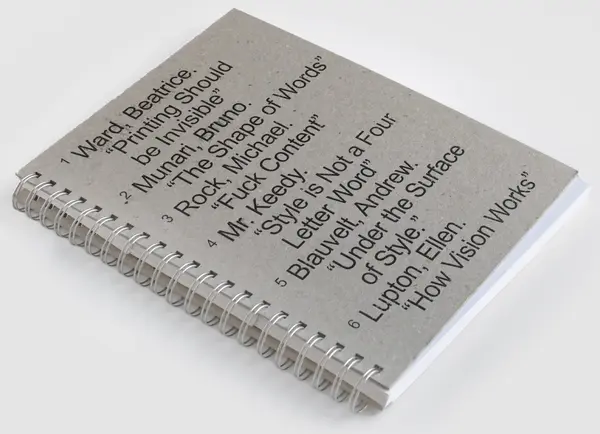 1 Ward, Beatrice.
“Printing Should
be Invisible”
2 Munari, Bruno.
“The Shape of Words”
3 Rock, Michael.
“Fuck Content”
4 Mr. Keedy.
“Style is Not a Four
Letter Word”
5 Blauvelt, Andrew.
“Under the Surface
of Style.”
6 Lupton, Ellen.
“How Vision Works”